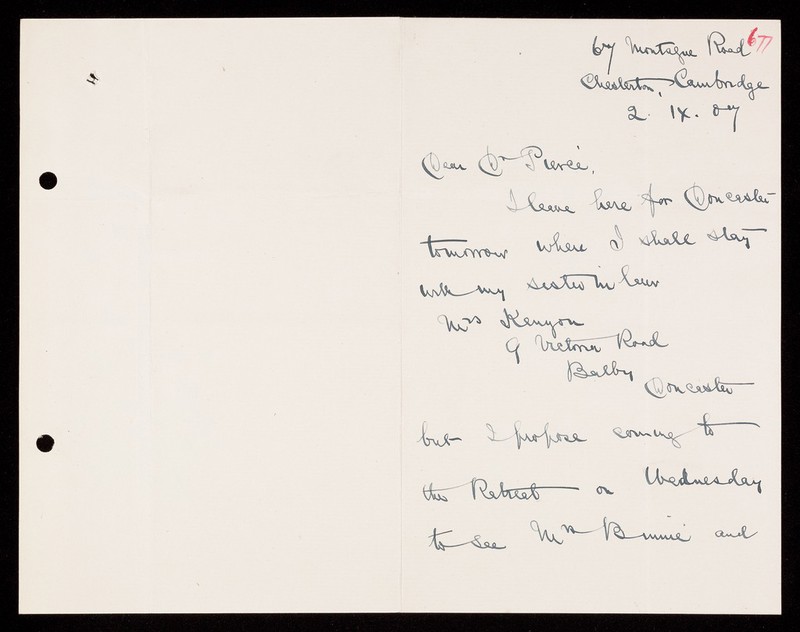 67 Montague Road 677
Chesterton, Cambridge
2. IX. 07
Dear Dr Pierce,
I leave here for Doncaster
tomorrow where I shall stay
with my sister in law
Mrs Kenyon
9 Victoria Road
Balby
Doncaster
but I propose coming to
the Retreat on Wednesday
to see Mrs Binnie and